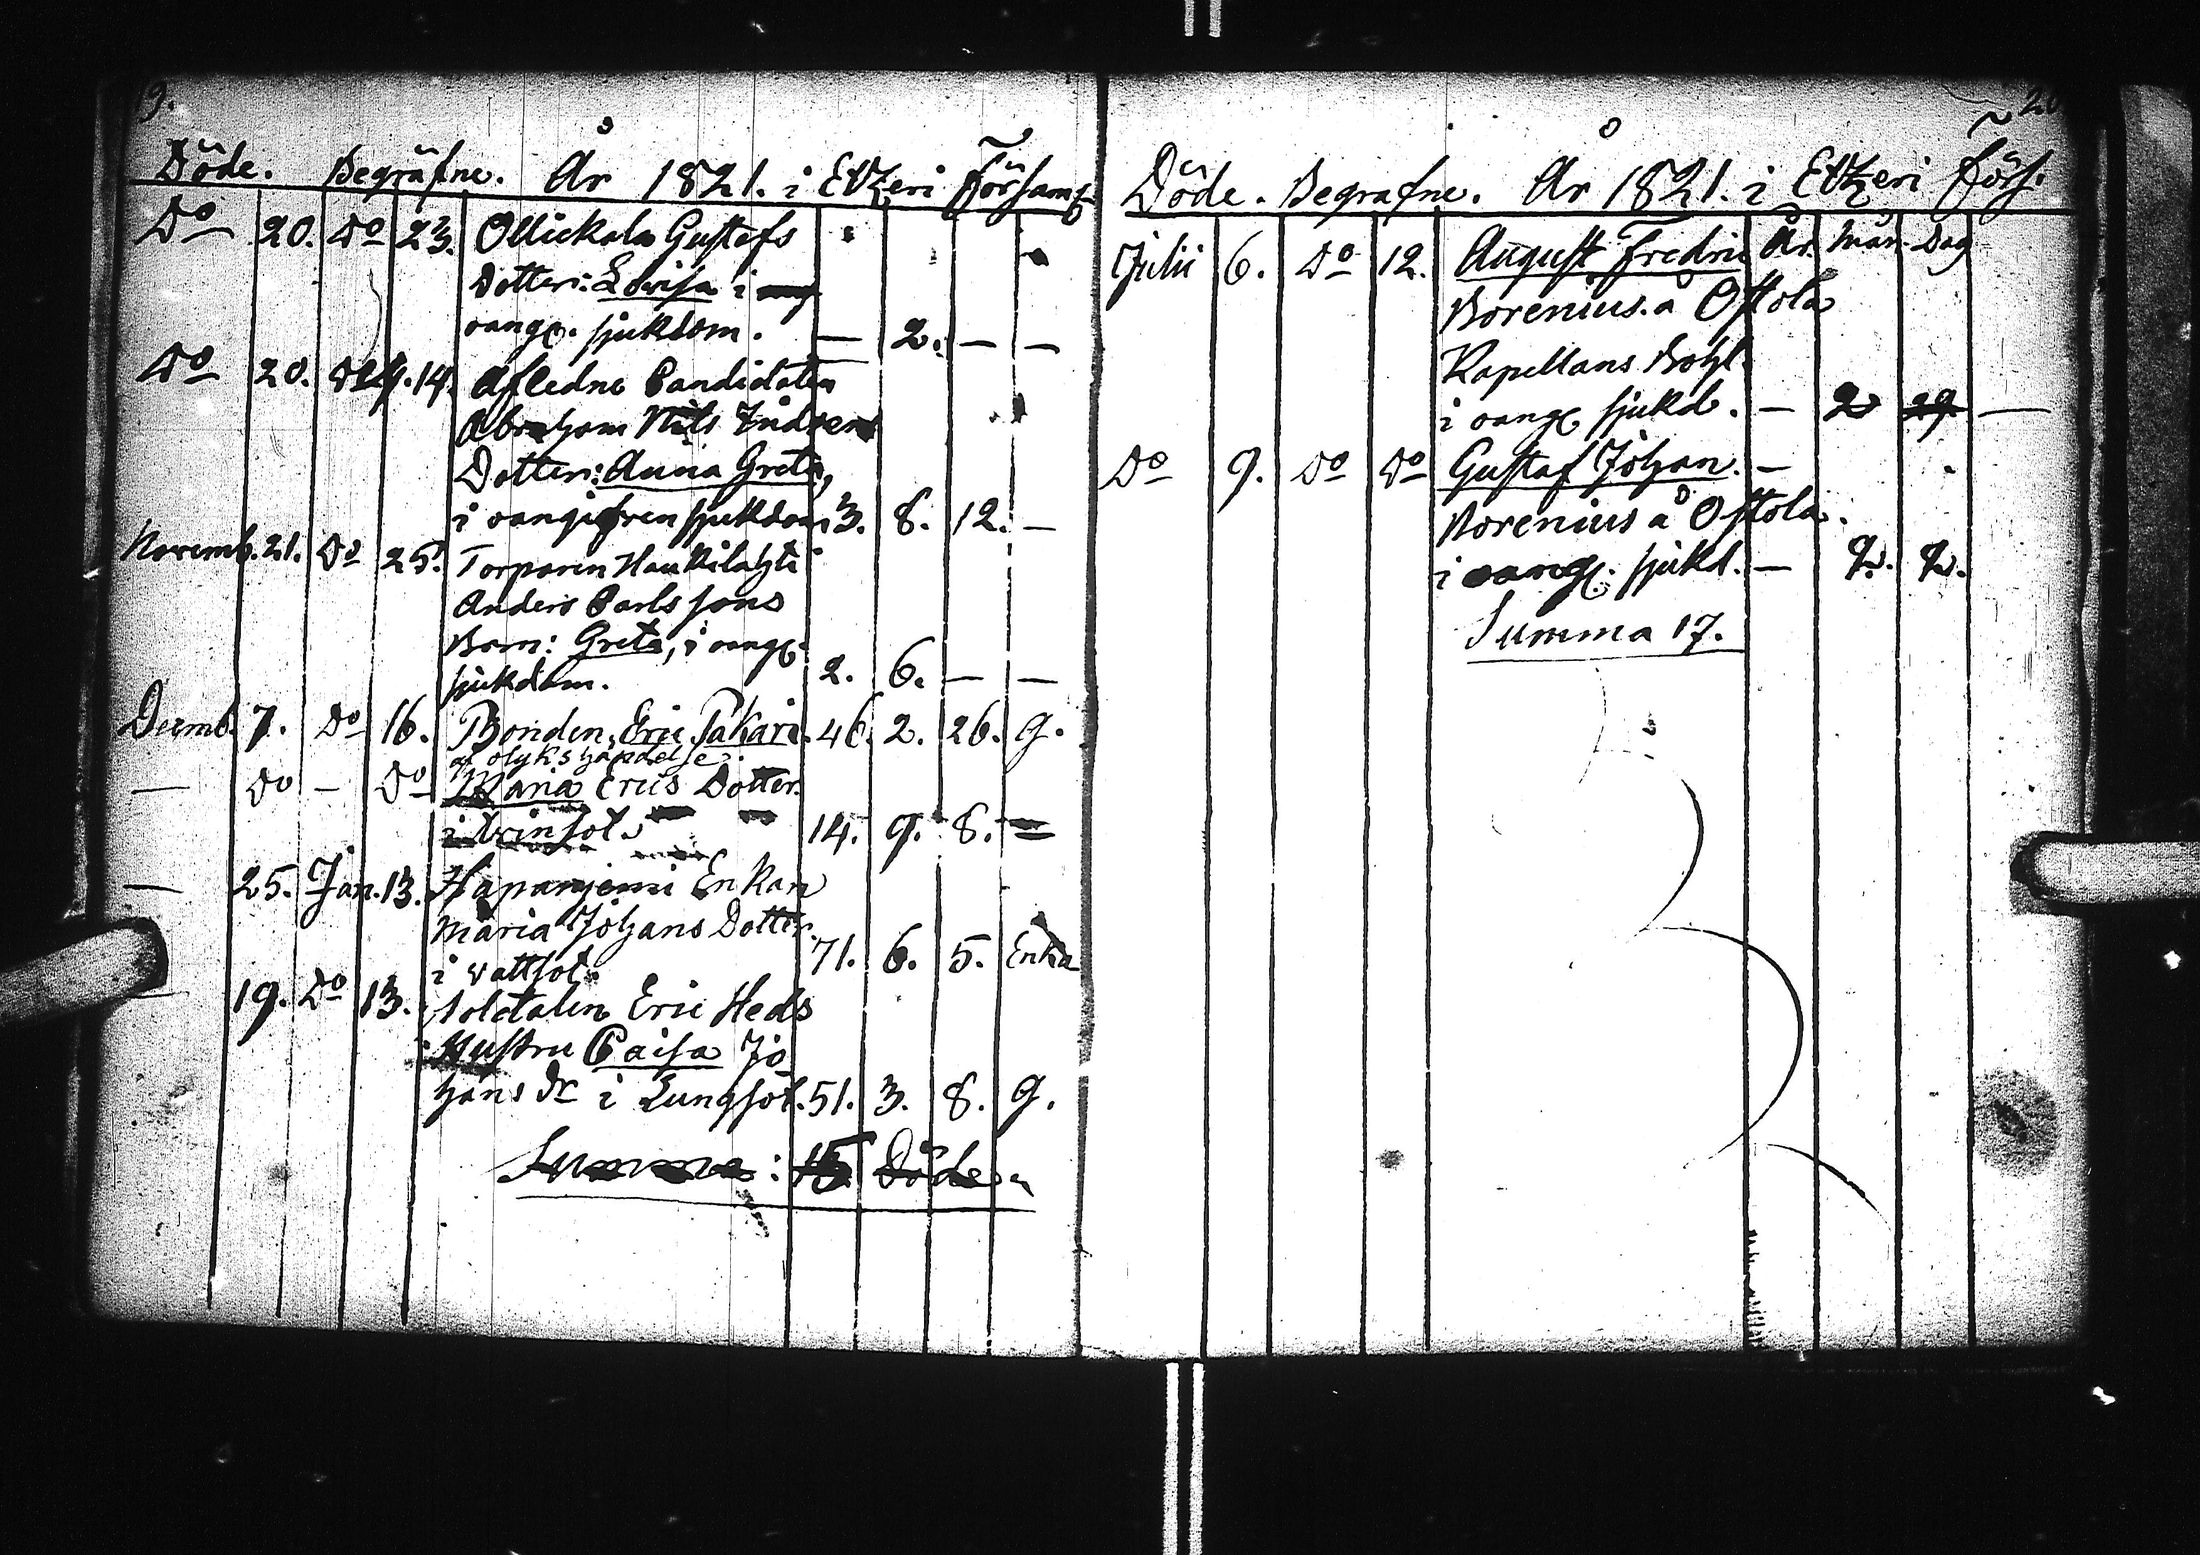 19.
Döde. Begräfne. År 1821. i Etzeri Församg
Do 20. Do 23. Ollickala Gustafs
Dotter: Lovisa i
oangr. sjukdom. — 2. — —
Do 20. 14. Afledne Candidaten
Abraham Nils Indrens
Dotter: Anna Greta,
i oangifven sjukdom 3. 8. 12. —
Novemb. 21. Do 25. Torparen Haukilahti
Anders Carlssons
Barn: Greta, i oangr.
sjukdom. 2. 6. — —
Decemb. 7. Do 16. Bonden, Eric Pakari. 46. 2. 26. g.
af olykshändelse.
— Do — Do Maria Erics Dotter.
i 14. 9. 8. —
— 25. Jan. 13. Enkan
Maria Johans Dotter.
i vattsot. 71. 6. 5. Enka
— 19. Do 13. Soldaten Eric Heds
Hustru Caisa Jo
hans Dr i Lungsot. 51. 3. 8. g.
Summa: 15 Döde
20
Döde. Begrafne. År 1821. i Etzeri förs.
År. Mån. Dag
Julii 6. Do 12. August Fredric
Borenius. å Ostola
Kapellans Bohl.
i oangr. sjukd. — 2 29 —
Do 9. Do Do Gustaf Johan. —
Borenius å Ostola.
i oangr. sjukd. — 2. 2.
Summa 17.